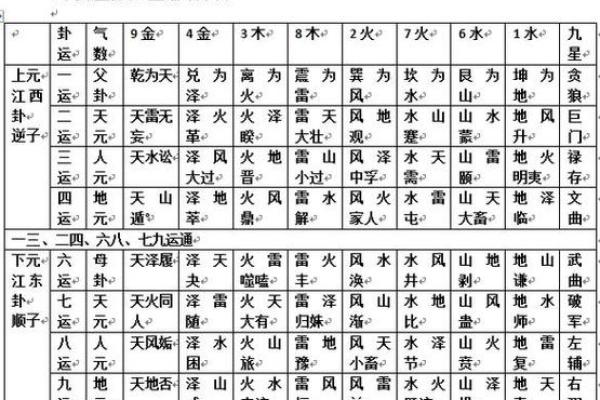 卦 气 9金 4金 3木 8木 2火 7火 6水 1水 九
运 数 星
上元 一 父 乾为天 兑为 离为 震为 巽为 坎为 艮为 坤为 贪
江西 运 卦 泽 火 雷 风 水 山 地 狼
卦 二 天 天雷无 泽火 火泽 雷天 风地 水山 山水 地风 巨
逆子 运 元 妄 革 睽 大壮 观 蹇 蒙 升 门
三 人 天水讼 泽风 火地 雷山 风泽 水天 山雷 地火 禄
运 元 大过 晋 小过 中孚 需 颐 明夷 存
四 地 天山 泽地 火风 雷水 风火 水雷 山天 地泽 文
运 元 遁 萃 鼎 解 家人 屯 大畜 临 曲
一三、二四、六八、七九运通
下元 六 母 天泽履 泽天 火雷 雷火 风水 水风 山地 地山 武
江东 运 卦 夬 噬嗑 丰 涣 井 剥 谦 曲
卦 七 天 天火同 泽雷 火天 雷泽 风山 水地 山风 地水 破
顺子 运 元 人 随 大有 归妹 渐 比 蛊 师 军
八 人 天风姤 泽水 火山 雷地 风天 水泽 山火 地雷 左
运 元 困 旅 豫 小畜 节 贲 复 辅
九 地 天地否 泽山 火水 雷风 风雷 水火 山泽 地天 右